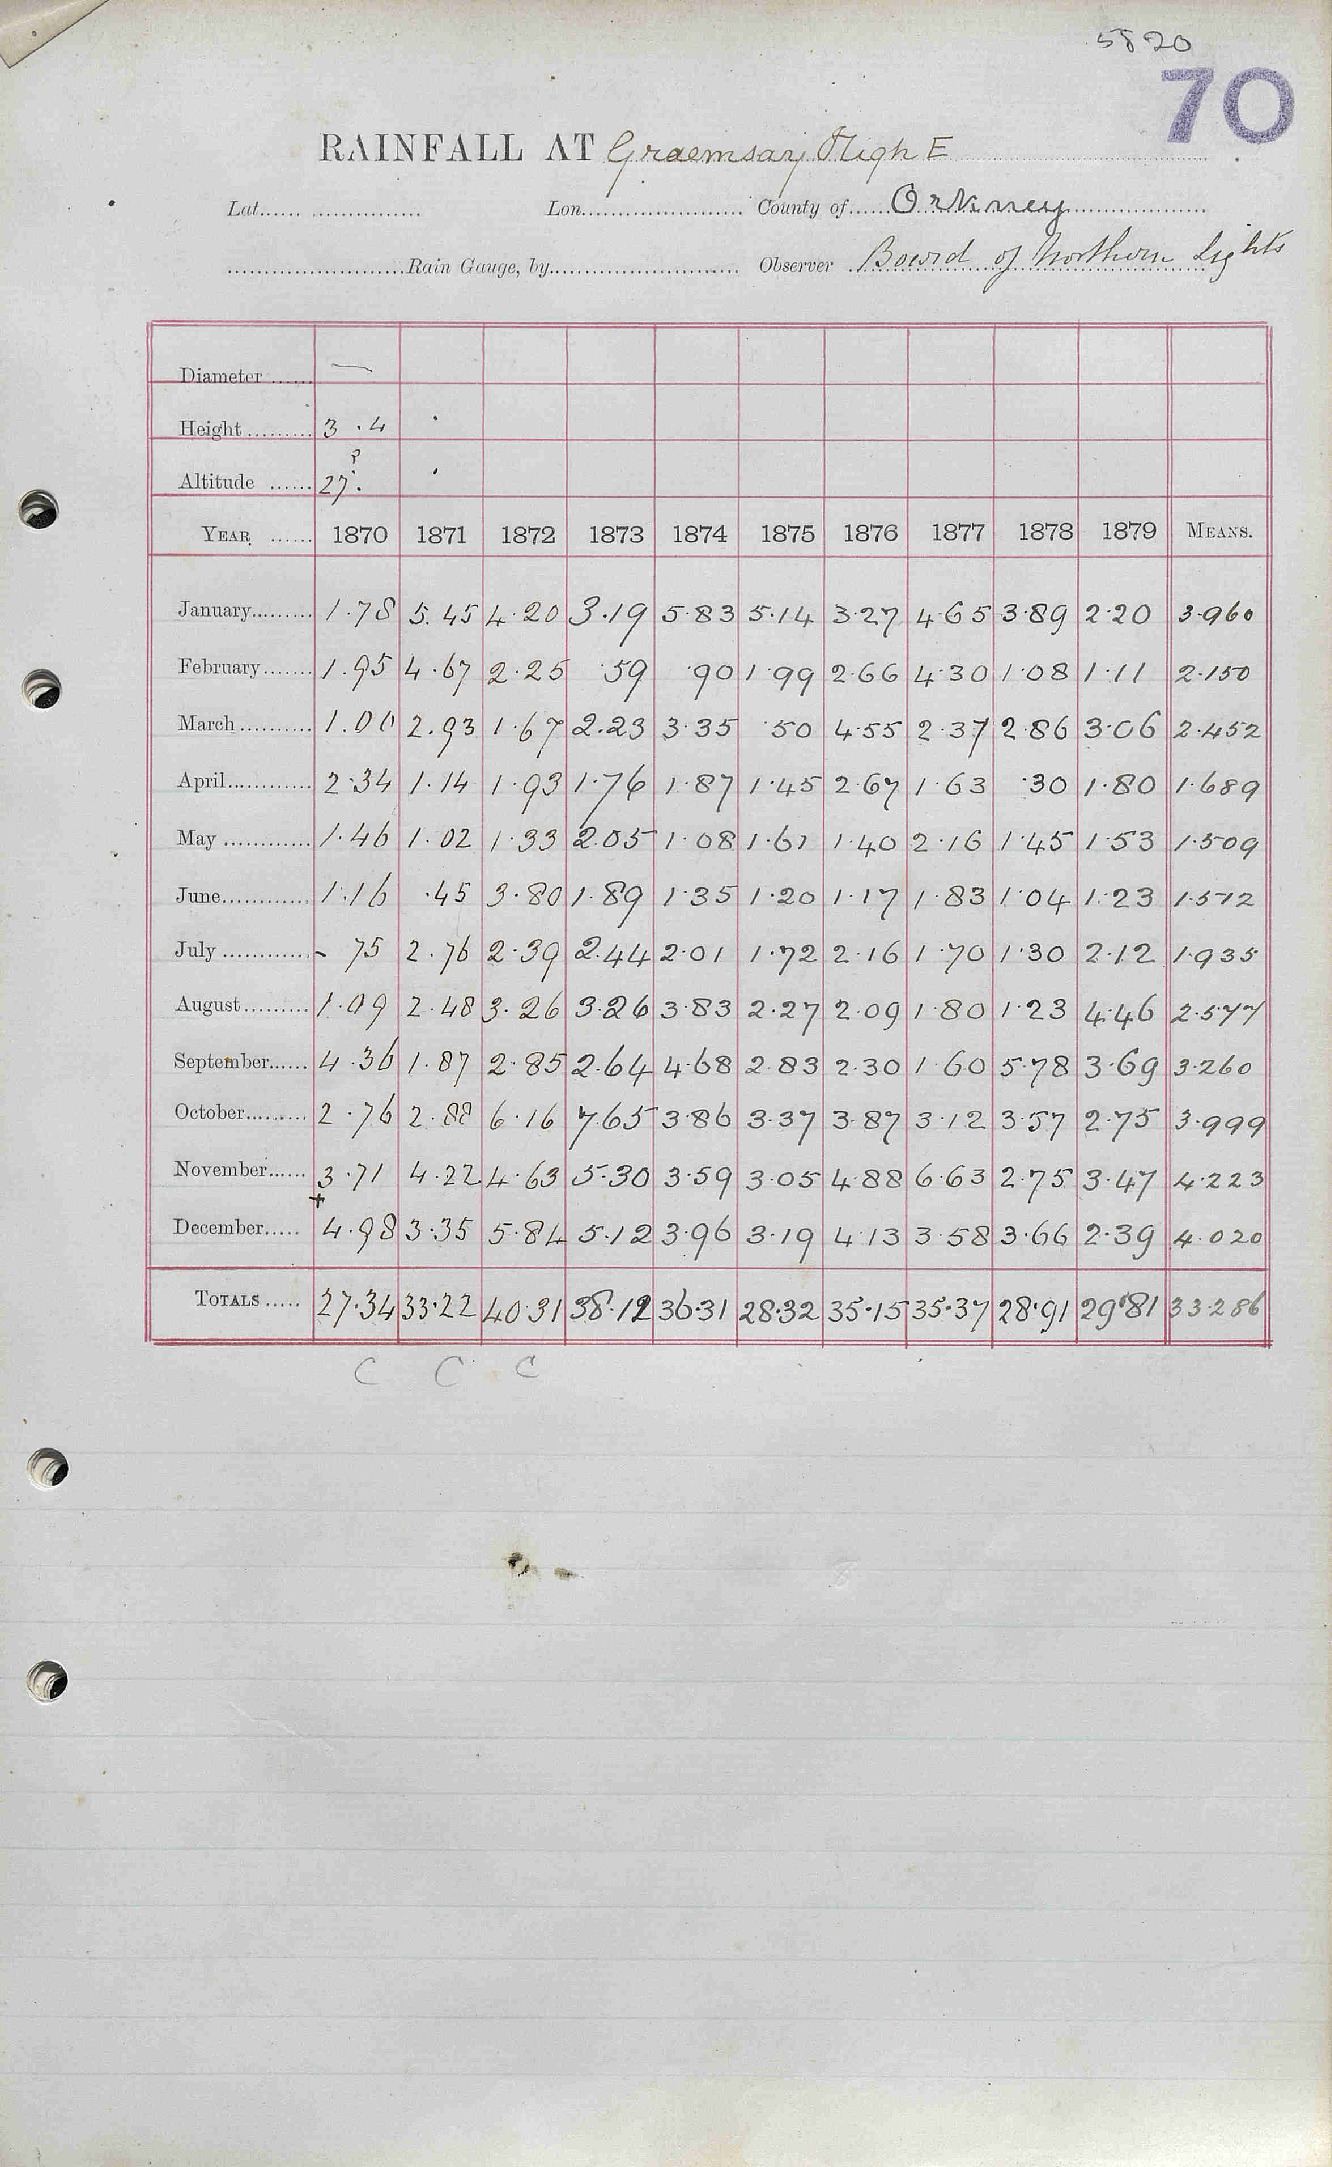 5820
70
RAINFALL AT Graemsay High E
Lat. Lon. County of Orkney
Rain Gauge, by Observer Board of Northern Lights
Diameter —
Height 3 . 4
?
Altitude 27.
YEAR 1870 1871 1872 1873 1874 1875 1876 1877 1878 1879 MEANS.
January 1.78 5.45 4.20 3.19 5.83 5.14 3.27 4.65 3.89 2.20 3.960
February 1.95 4.67 2.25 .59 .90 1.99 2.66 4.30 1.08 1.11 2.150
March 1.00 2.93 1.67 2.23 3.35 .50 4.55 2.37 2.86 3.06 2.452
April 2.34 1.14 1.93 1.76 1.87 1.45 2.67 1.63 .30 1.80 1.689
May 1.46 1.02 1.33 2.05 1.08 1.61 1.40 2.16 1.45 1.53 1.509
June 1.16 .45 3.80 1.89 1.35 1.20 1.17 1.83 1.04 1.23 1.512
July - 75 2.76 2.39 2.44 2.01 1.72 2.16 1.70 1.30 2.12 1.935
August 1.09 2.48 3.26 3.26 3.83 2.27 2.09 1.80 1.23 4.46 2.577
September 4.36 1.87 2.85 2.64 4.68 2.83 2.30 1.60 5.78 3.69 3.260
October 2.76 2.88 6.16 7.65 3.86 3.37 3.87 3.12 3.57 2.75 3.999
November 3.71 4.22 4.63 5.30 3.59 3.05 4.88 6.63 2.75 3.47 4.223
+
December 4.98 3.35 5.84 5.12 3.96 3.19 4.13 3.58 3.66 2.39 4.020
TOTALS 27.34 33.22 40.31 38.12 36.31 28.32 35.15 35.37 28.91 29.81 33.286
C C C